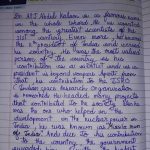 Dr. APJ Abdul Kalam is a famous name
in the whole world. He is counted
among the greatest scientists of the
21st century. Even more, he became
the president of India and served
his country. He was the most valued
person of the country as his
contribution as a scientist and as a
president is beyond compare. Apart from
that his contribution to the ISRO
(Indian Space Research Organisation)
is remarkable. He headed many projects
that contributed to the society also he
was the one who helped in the
development
on the nuclear power in
India, he was known as Missile man
of India. And due to his contribution
to the country, the government